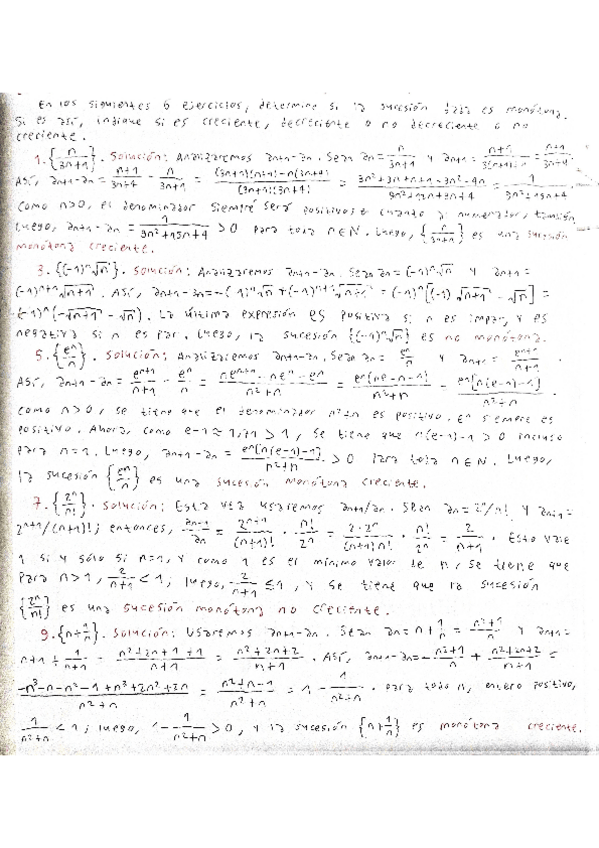 En los siguientes 6 ejercicios, determine si la sucesión dada es monótona.
Si es así, indique si es creciente, decreciente o no decreciente o no
creciente.
1. {n/(3n+1)}. Solución: Analizaremos an+1-an. Sean an = n/(3n+1) y an+1 = (n+1)/(3(n+1)+1) = (n+1)/(3n+4).
Así, an+1-an = (n+1)/(3n+4) - n/(3n+1) = ((3n+1)(n+1)-n(3n+4))/((3n+1)(3n+4)) = (3n²+3n+n+1-3n²-4n)/(9n²+12n+3n+4) = 1/(9n²+15n+4).
Como n>0, el denominador siempre será positivo; en cuanto a numerador, también.
Luego, an+1-an = 1/(9n²+15n+4) > 0 para todo n∈N. Luego, {n/(3n+1)} es una sucesión
monótona creciente.
3. {(-1)ⁿ√n}. Solución: Analizaremos an+1-an. Sean an = (-1)ⁿ√n y an+1 =
(-1)ⁿ⁺¹√(n+1). Así, an+1-an = -(-1)ⁿ√n + (-1)ⁿ⁺¹√(n+1) = (-1)ⁿ[(-1)√(n+1) - √n] =
(-1)ⁿ(-√(n+1) - √n). La última expresión es positiva si n es impar, y es
negativa si n es par. Luego, la sucesión {(-1)ⁿ√n} es no monótona.
5. {eⁿ/n}. Solución: Analizaremos an+1-an. Sean an = eⁿ/n y an+1 = eⁿ⁺¹/(n+1).
Así, an+1-an = eⁿ⁺¹/(n+1) - eⁿ/n = (neⁿ⁺¹-neⁿ-eⁿ)/(n²+n) = eⁿ(ne-n-1)/(n²+n) = eⁿ[n(e-1)-1]/(n²+n).
Como n>0, se tiene que el denominador n²+n es positivo. eⁿ siempre es
positivo. Ahora, como e-1≈1,71>1, se tiene que n(e-1)-1>0 incluso
para n=1. Luego, an+1-an = eⁿ[n(e-1)-1]/(n²+n) > 0 para todo n∈N. Luego,
la sucesión {eⁿ/n} es una sucesión monótona creciente.
7. {2ⁿ/n!}. Solución: Esta vez usaremos an+1/an. Sean an = 2ⁿ/n! y an+1 =
2ⁿ⁺¹/(n+1)!; entonces, an+1/an = 2ⁿ⁺¹/(n+1)! · n!/2ⁿ = 2·2ⁿ/((n+1)n!) · n!/2ⁿ = 2/(n+1). Esto vale
1 si y sólo si n=1, y como 1 es el mínimo valor de n, se tiene que
para n>1, 2/(n+1) < 1; luego, 2/(n+1) ≤ 1, y se tiene que la sucesión
{2ⁿ/n!} es una sucesión monótona no creciente.
9. {n+1/n}. Solución: Usaremos an+1-an. Sean an = n+1/n = (n²+1)/n y an+1 =
n+1+1/(n+1) = (n²+2n+1+1)/(n+1) = (n²+2n+2)/(n+1). Así, an+1-an = -(n²+1)/n + (n²+2n+2)/(n+1) =
(-n³-n-n²-1+n³+2n²+2n)/(n²+n) = (n²+n-1)/(n²+n) = 1 - 1/(n²+n). Para todo n, entero positivo,
1/(n²+n) < 1; luego, 1-1/(n²+n) > 0, y la sucesión {n+1/n} es monótona creciente.